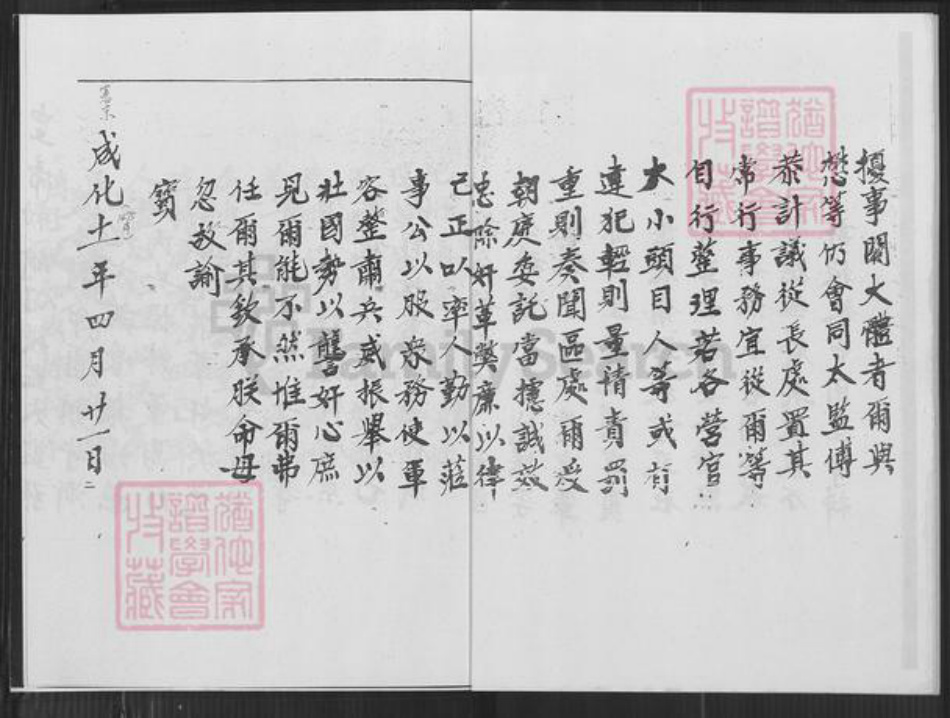 擾事関大體者爾與
懋等仍會同太監傅
恭計議從長處置其
常行事務宜從爾等
自行整理若各營官
大小頭目人等或有
違犯輕則量情責罰
重則奏聞區處爾受
朝廷委託當攄誠效
忠除奸革獘廉以律
己正以率人勤以蒞
事公以服衆務使軍
容整肅兵威振舉以
壯國勢以讋奸心庶
見爾能不然惟爾弗
任爾其欽承朕命毋
忽故諭
寶
成化十一年四月廿一日
憲宗
FamilySearch